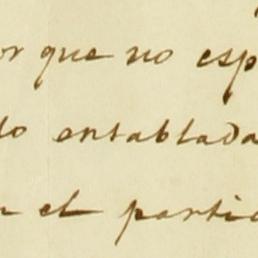 or que no esp
do entablada
n el partic